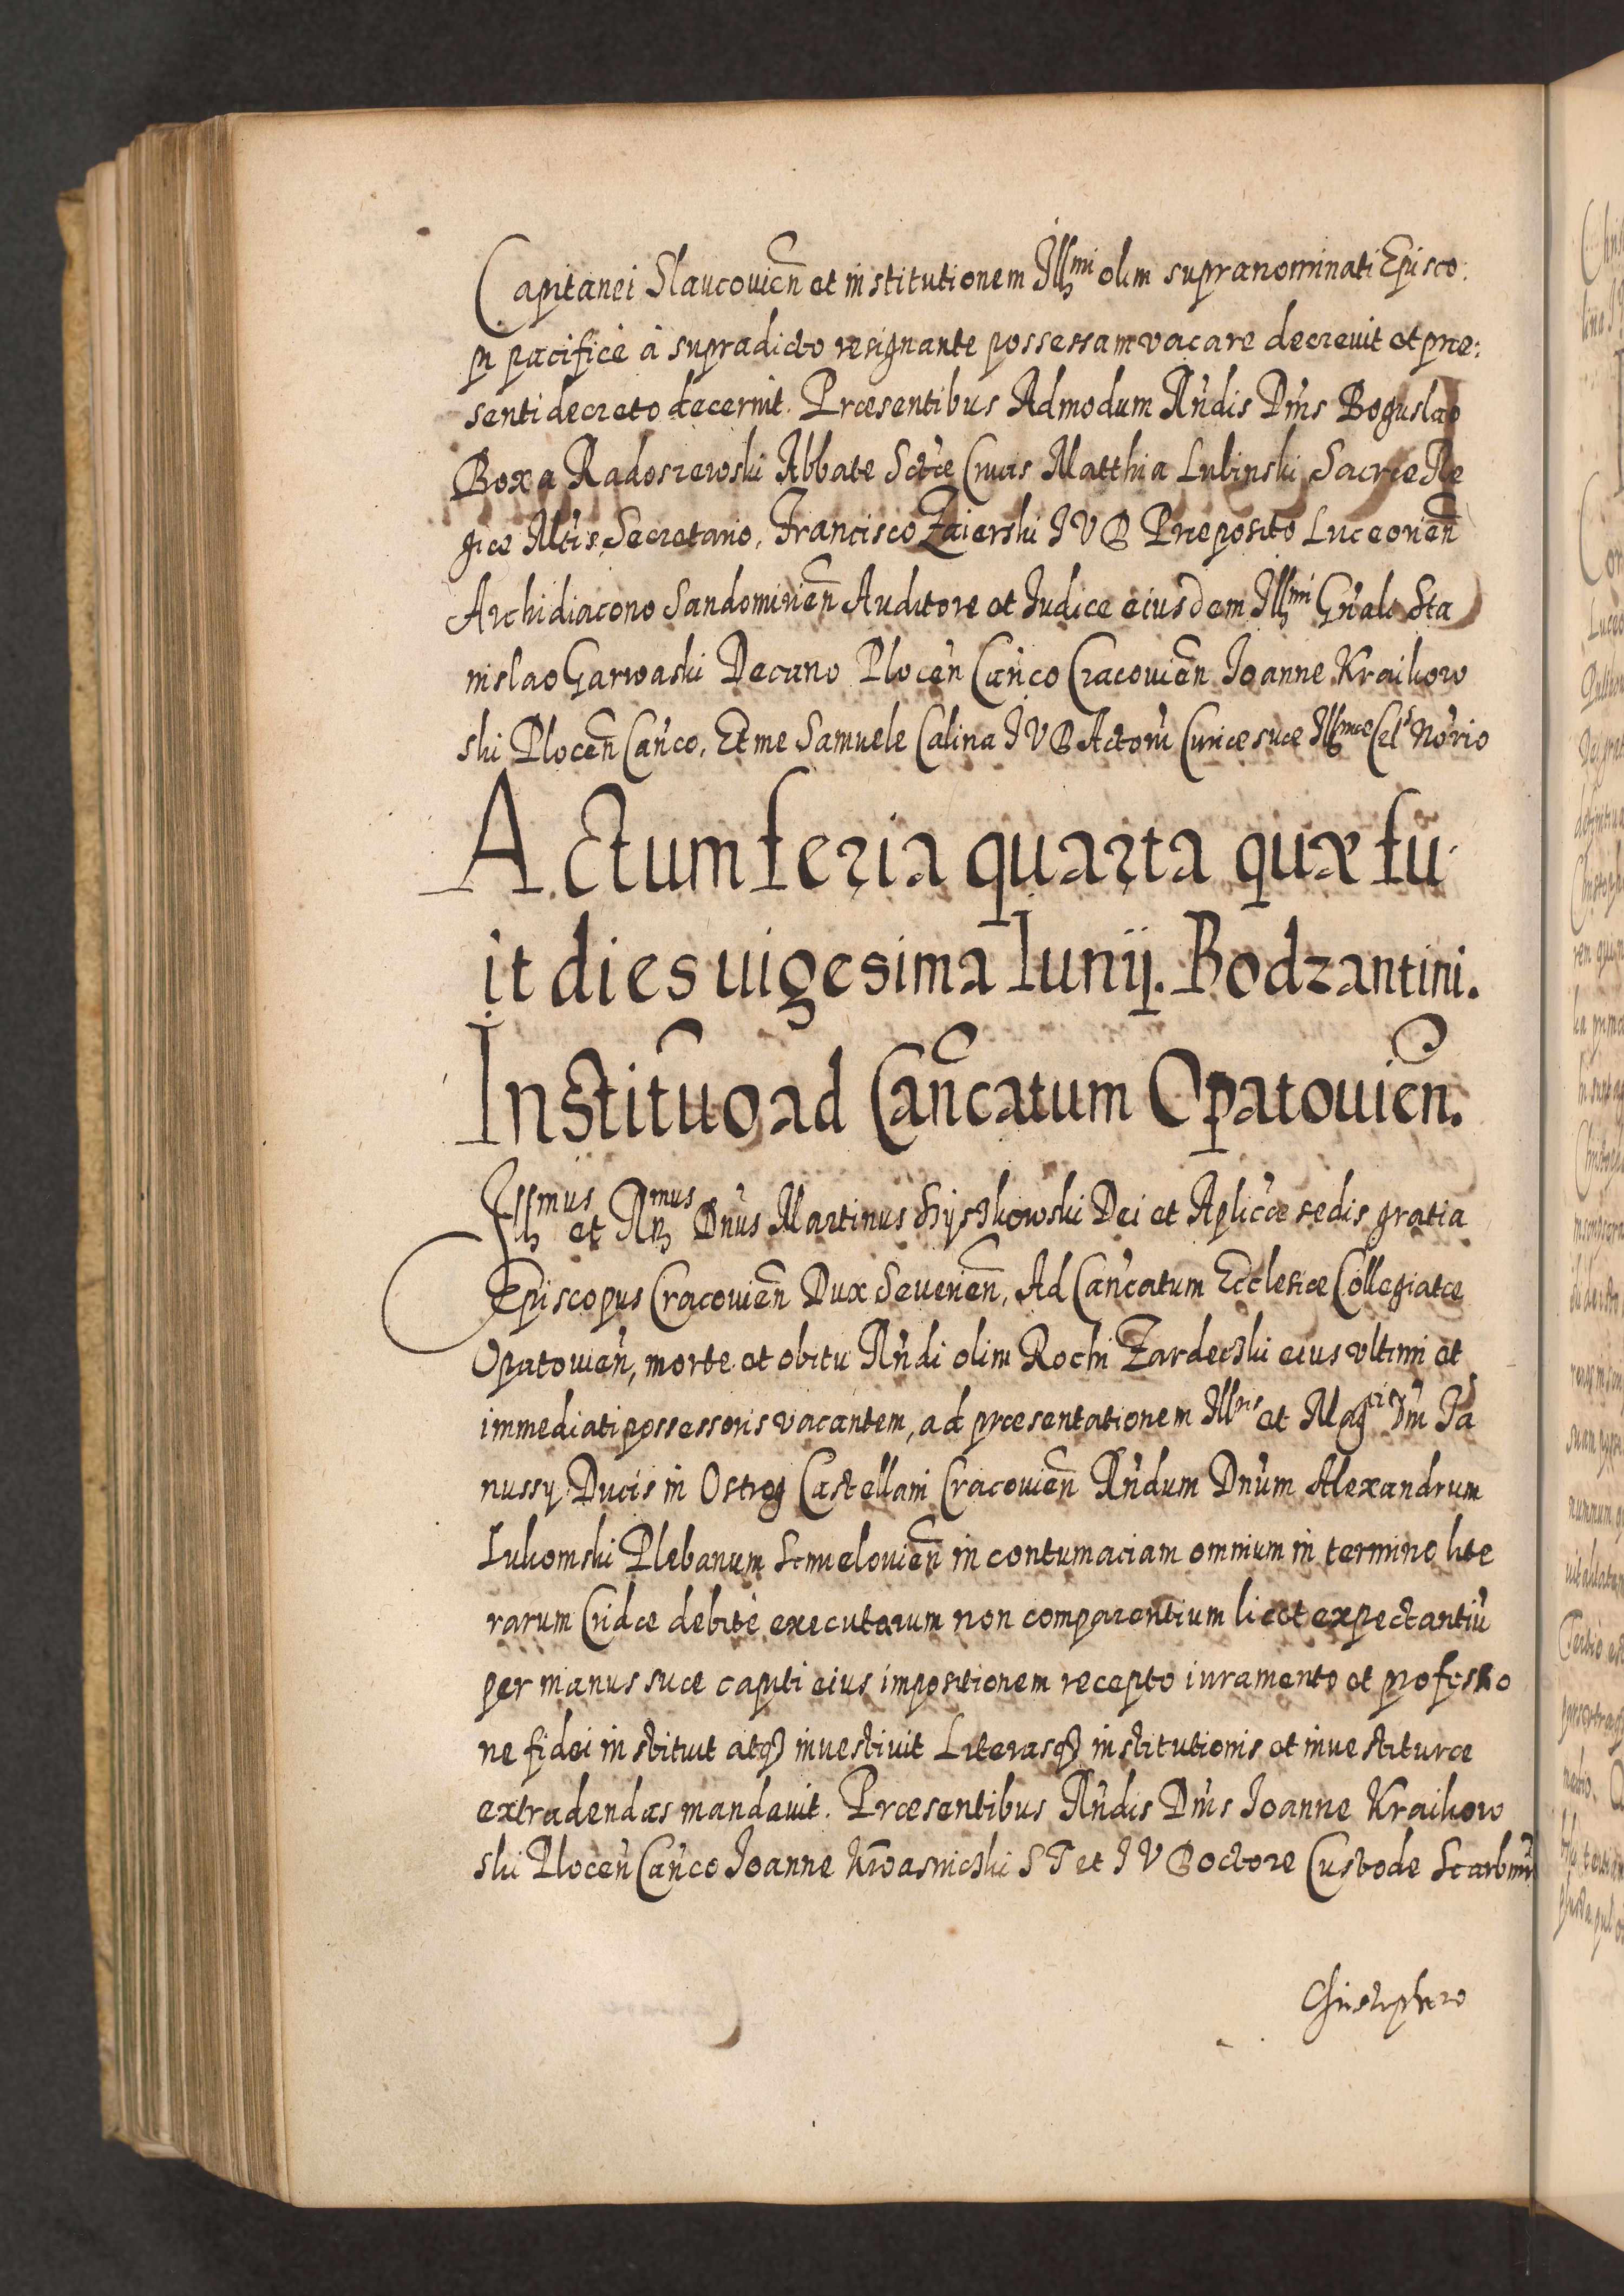 Capitanei Slaucouien̄ et institutionem Illmi olim supranominati Episco:
pi pacificè à supradicto resignante possessam vacare decreuit et præ:
senti decreto decernit. Præsentibus Admodum Rńdis Dnis Boguslao
Boxa Radoszewski Abbate Sctæ Crucis Matthia Lubinski Sacræ Re
giæ Mtis Secretario, Francisco Zaierski I V D Præposito Luceorien̄
Archidiacono Sandomirien̄ Auditore et Iudice eiusdem Illmi Gńali Sta
nislao Garwaski Decano Plocen̄ Cańco Cracouien̄ Ioanne Kraikow
ski Plocen̄ Cańco, Et me Samuele Calina I V D Actorū Curiæ suæ Illmæ Cels Nório
Actum feria quarta quæ fu
it dies uigesima Iunij. Bodzantini.
Institūo ad Cańcatum Opatouien̄.
Illmus et Rmus Dńus Martinus Szyszkowski Dei et Aplicæ sedis gratia
Episcopus Cracouien̄ Dux Seuerien̄, Ad Cańcatum Ecclesiæ Collegiatæ
Opatouien̄, morte et obitu Rńdi olim Rochi Zardecki eius vltimi et
immediati possessoris vacantem, ad præsentationem Illris et Magci Dńi Ia
nussy Ducis in Ostrog Castellani Cracouien̄ Rńdum Dńum Alexandrum
Lukomski Plebanum Scmielouien̄ in contumaciam omnium in termino lite
rarum Cridæ debitè executarum non comparentium licet expectantiū
per manus suæ capiti eius impositionem recepto iuramento et professio
ne fidei instituit atq₃ inuestiuit Literasq₃ institutionis et inuestituræ
extradendas mandauit. Præsentibus Rńdis Dńis Ioanne Kraikow
ski Plocen̄ Cańco Ioanne Kwasnicki S T et I V Doctore Custode Scarbmir̄
Christophero